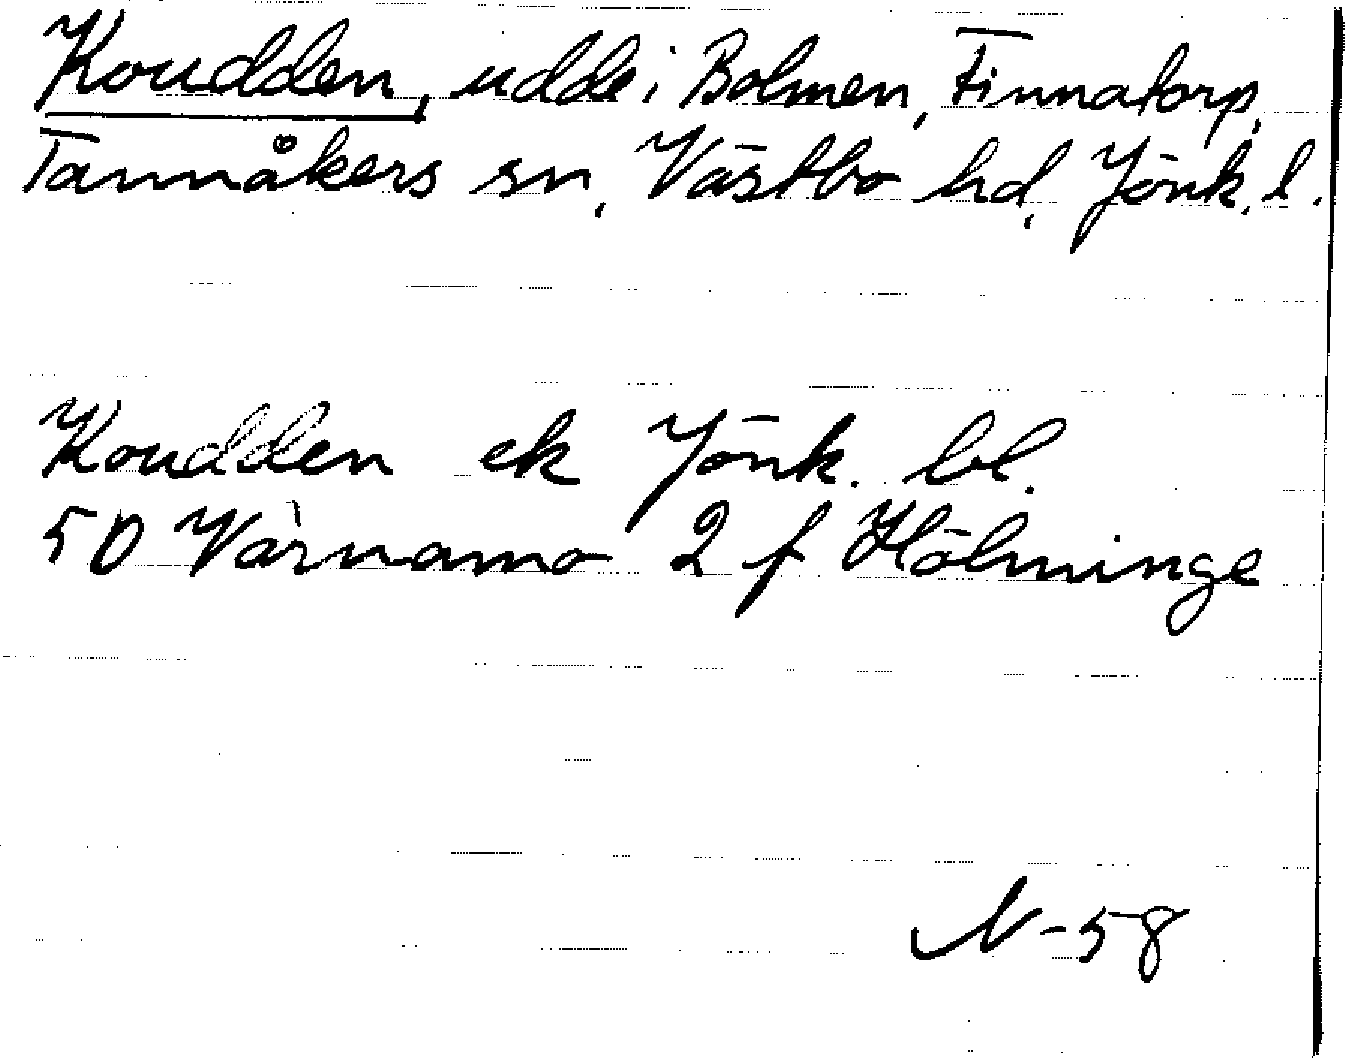 Koudden, udde i Bolmen, Finnatorp,
Tannåkers sn, Västbo hd, Jönk. l.
Koudden ek Jönk. bl.
50 Värnamo 2 f Hölminge
N-58